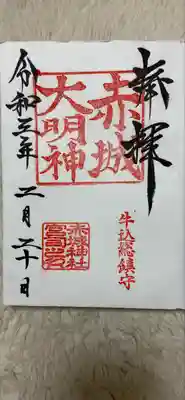 奉拝
牛込總鎮守
赤城
大明神
赤城神社
令和三年二月二十日